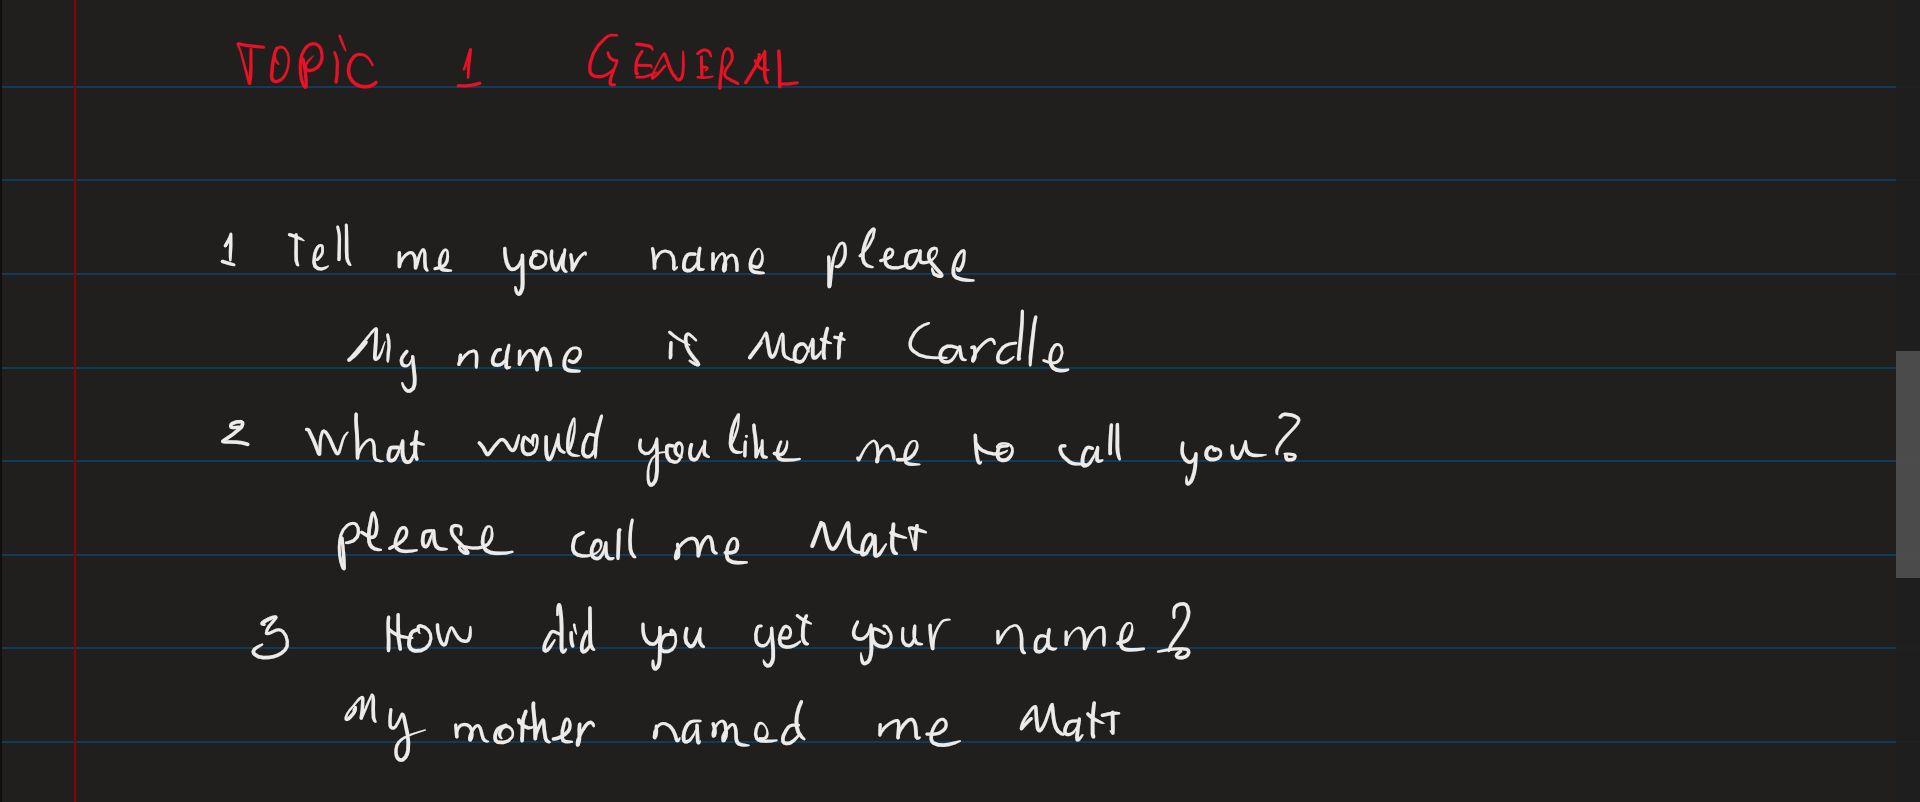 TOPiC 1 GENERAL
1 Tell me your name please
My name is Matt Cardle
2 What would you like me to call you?
please call me Matt
3 How did you get your name?
My mother named me Matt